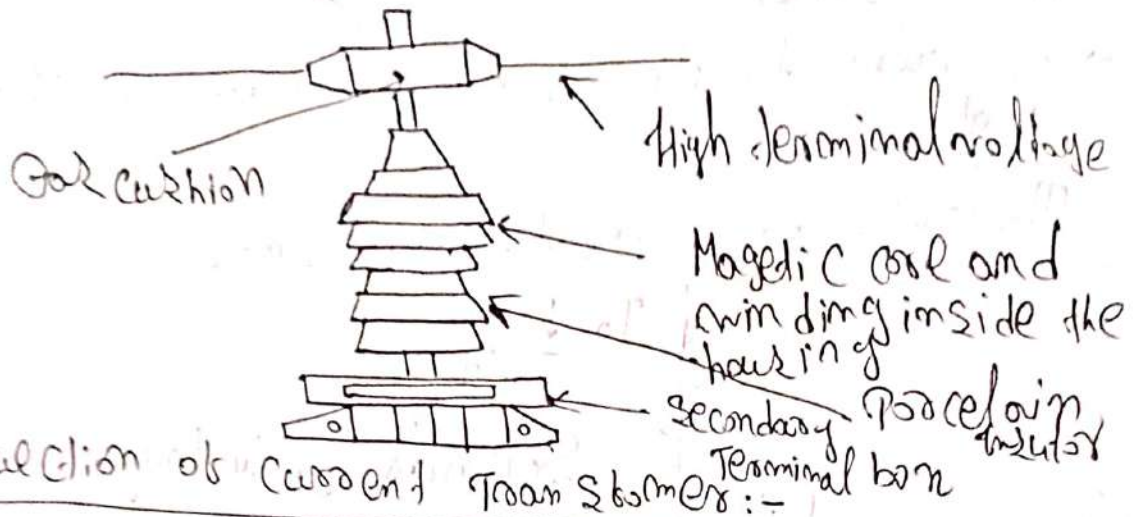 High terminal voltage
Gas cushion
Magetic core and
winding inside the
housing
Porcelain
Insutor
Secondary
Terminal box
uction of Current Transformer:-